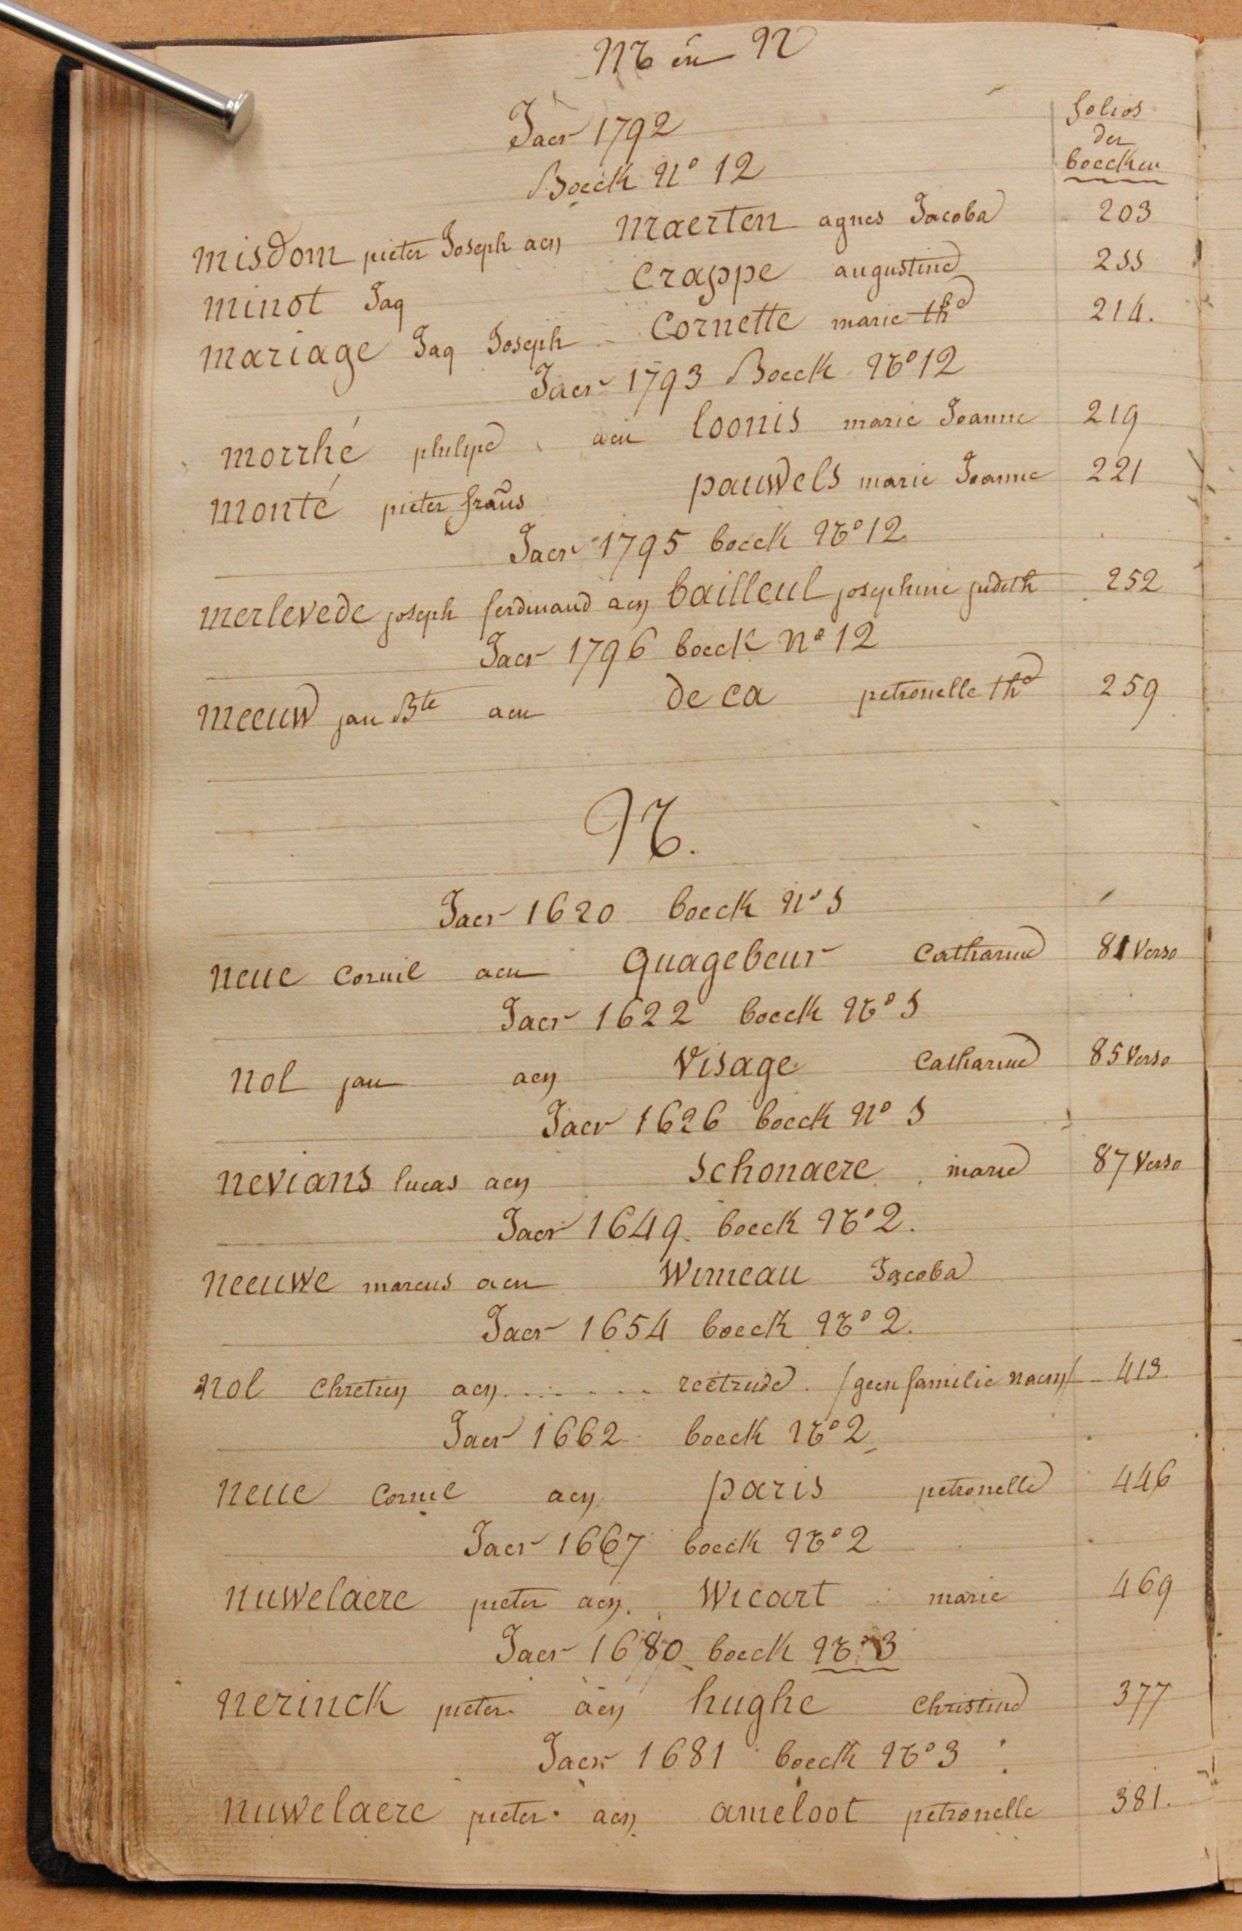 M en N
Jaer 1792
folios
der
boecken
Boeck N° 12
misdom pieter Joseph aen maerten agnes Jacoba 203
minot Jaq crappe augustine 255
mariage Jaq Joseph Cornette marie the 214.
Jaer 1793 Boeck N° 12
morrhé philipe aen loonis marie Joanne 219
monté pieter frans pauwels marie Joanne 221
Jaer 1795 boeck N° 12
merlevede joseph ferdinand aen bailleul josephine judith 252
Jaer 1796 boeck N° 12
meeuw jan Bte aen deca petronelle the 259
N.
Jaer 1620 boeck N° 5
neue Cornil aen quagebeur Catharine 81 Verso
Jaer 1622 boeck N° 5
nol jan aen Visage Catharine 85 Verso
Jaer 1626 boeck N° 5
nevians lucas aen schonaere marie 87 Verso
Jaer 1649 boeck N° 2.
neeuwe marcus aen Wimeau Jacoba
Jaer 1654 boeck N° 2.
nol chretien aen ........ rectrude /geen familie naem/ 413
Jaer 1662 boeck N° 2
neue Cornil aen paris petronelle 446
Jaer 1667 boeck N° 2
nuwelaere pieter aen Wicart marie 469
Jaer 1680 boeck N° 3
nerinck pieter aen hughe Christine 377
Jaer 1681 boeck N° 3
nuwelaere pieter aen ameloot petronelle 381.